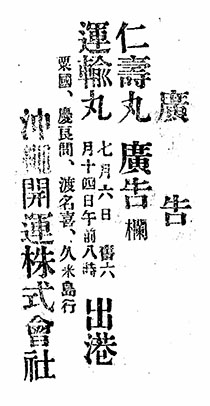 廣告
仁壽丸 廣告欄
運輸丸 七月六日 舊六月十四日午前八時 出港
粟國、慶良間、渡名喜、久米島行
沖繩開運株式會社